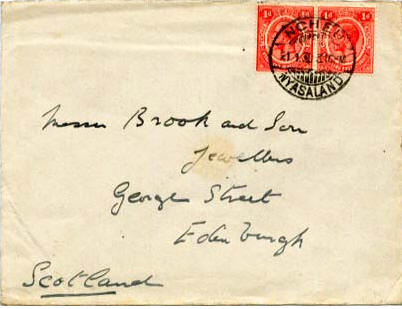 1d 1d
NCHEU
NYASALAND
Messrs Brook and Son
Jewellers
George Street
Edinburgh
Scotland